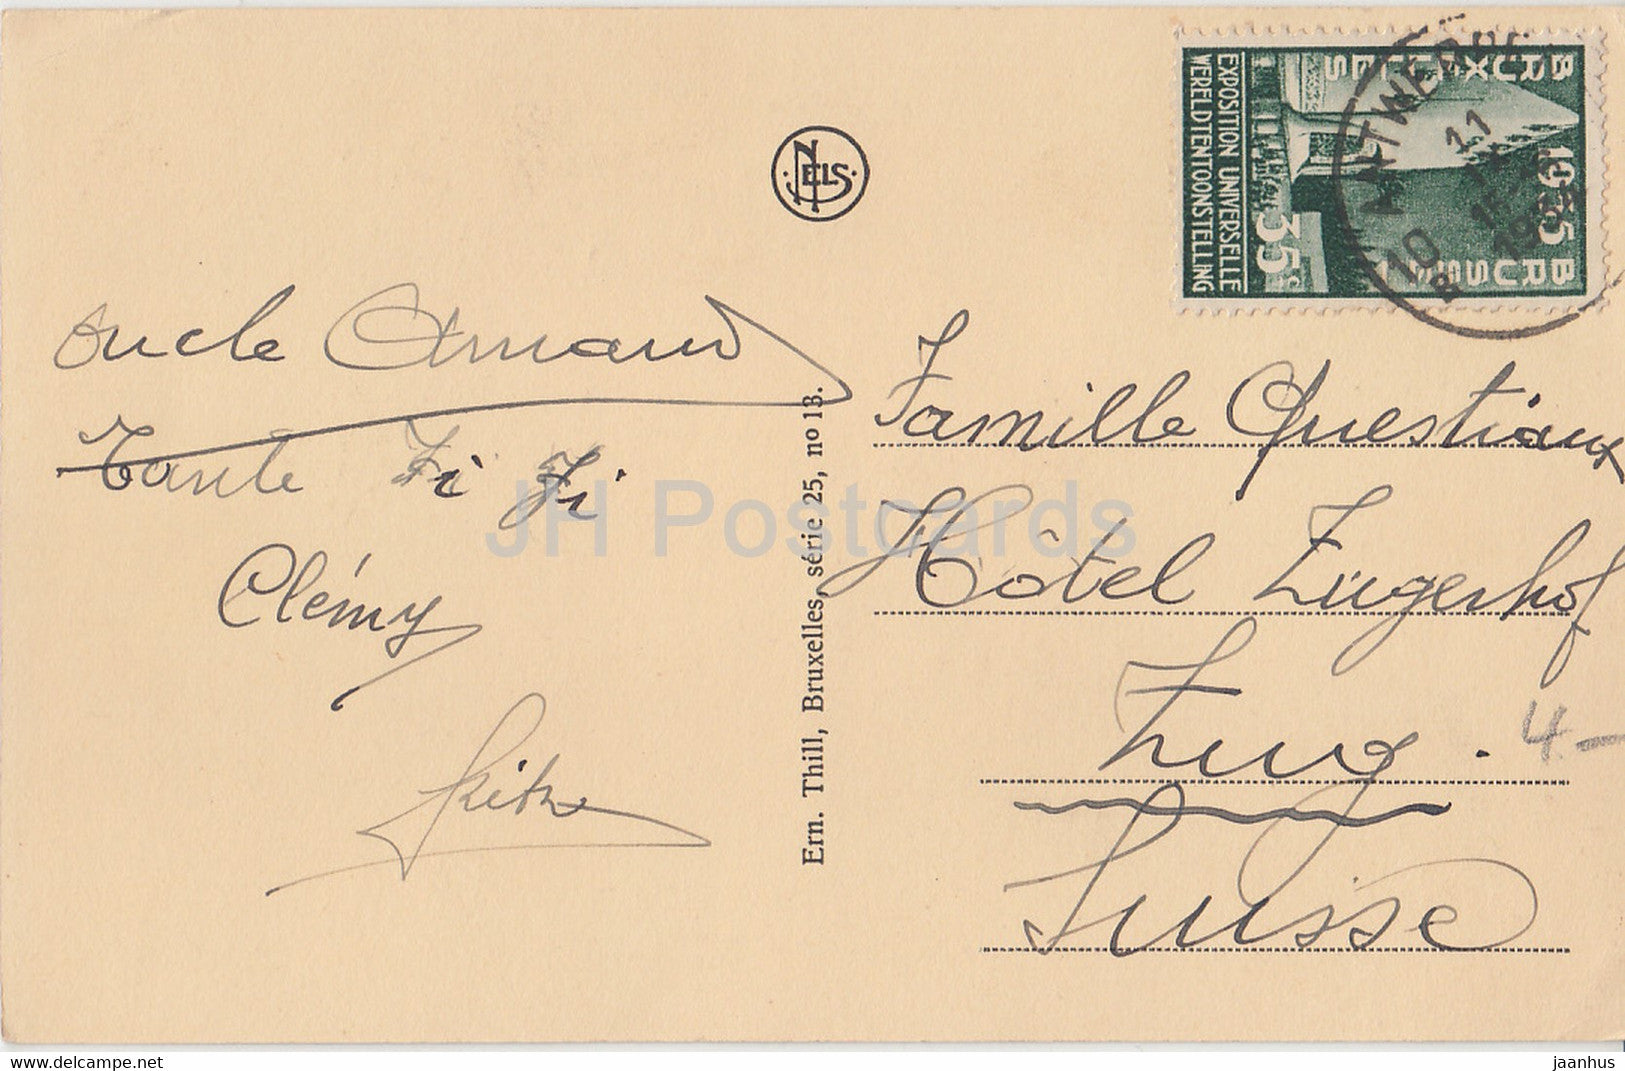 NELS
Oncle Armand
Tante Fi Fi
Clémy
Ern. Thill, Bruxelles, série 25, nº 13.
BRUXELLES 1935 BRUSSEL
EXPOSITION UNIVERSELLE
WERELDTENTOONSTELLING
35c
ANTWERPEN
11
10
Famille Questiaux
Hôtel Zugerhof
Zug.
Suisse
4-
JH Postcards
www.delcampe.net
jaanhus